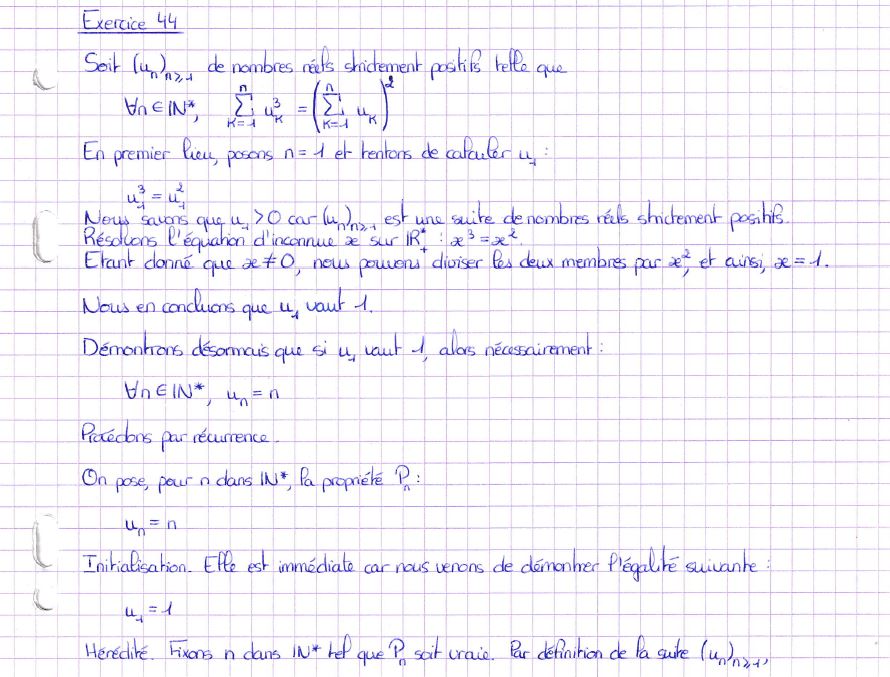 Exercice 44
Soit (uₙ)ₙ≥₁ de nombres réels strictement positifs telle que
∀n ∈ IN*, ∑ₖ₌₁ⁿ uₖ³ = (∑ₖ₌₁ⁿ uₖ)²
En premier lieu, posons n = 1 et tentons de calculer u₁ :
u₁³ = u₁²
Nous savons que u₁ > 0 car (uₙ)ₙ≥₁ est une suite de nombres réels strictement positifs.
Résolvons l'équation d'inconnue x sur IR₊* : x³ = x².
Etant donné que x ≠ 0, nous pouvons diviser les deux membres par x², et ainsi, x = 1.
Nous en concluons que u₁ vaut 1.
Démontrons désormais que si u₁ vaut 1, alors nécessairement :
∀n ∈ IN*, uₙ = n
Procédons par récurrence.
On pose, pour n dans IN*, la propriété Pₙ :
uₙ = n
Initialisation. Elle est immédiate car nous venons de démontrer l'égalité suivante :
u₁ = 1
Hérédité. Fixons n dans IN* tel que Pₙ soit vraie. Par définition de la suite (uₙ)ₙ≥₁,